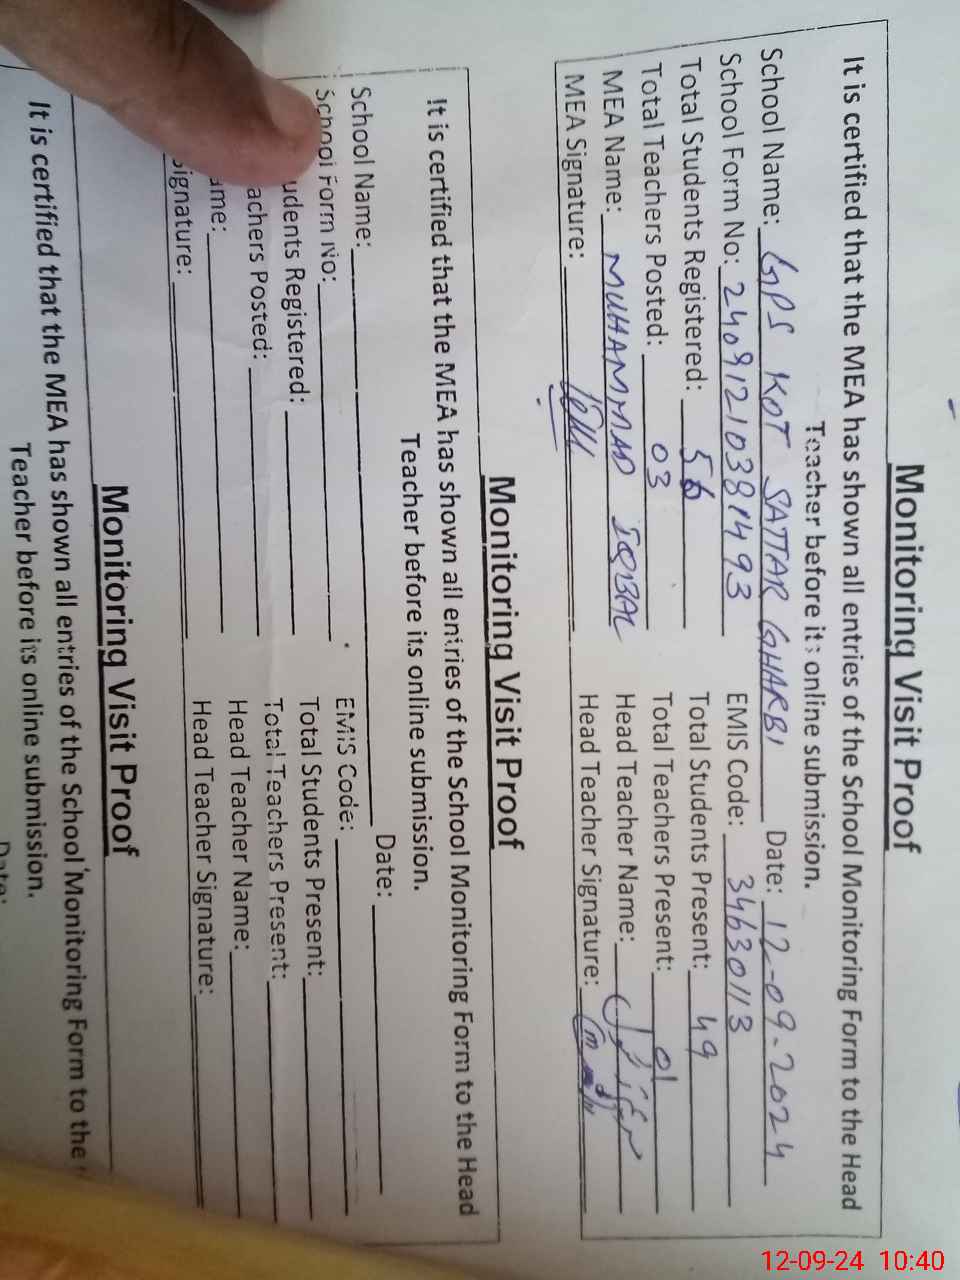 Monitoring Visit Proof
It is certified that the MEA has shown all entries of the School Monitoring Form to the Head
Teacher before its online submission.
School Name: GPS KOT SATTAR GHARBI Date: 12-09-2024
School Form No: 24091210381493 EMIS Code: 34630113
Total Students Registered: 56 Total Students Present: 49
Total Teachers Posted: 03 Total Teachers Present: 01
MEA Name: MUHAMMAD IQBAL Head Teacher Name:
MEA Signature: Head Teacher Signature:
Monitoring Visit Proof
It is certified that the MEA has shown all entries of the School Monitoring Form to the Head
Teacher before its online submission.
School Name: Date:
School Form No: EMIS Code:
udents Registered: Total Students Present:
achers Posted: Total Teachers Present:
ame: Head Teacher Name:
Signature: Head Teacher Signature:
Monitoring Visit Proof
It is certified that the MEA has shown all entries of the School Monitoring Form to the
Teacher before its online submission.
Date:
12-09-24 10:40